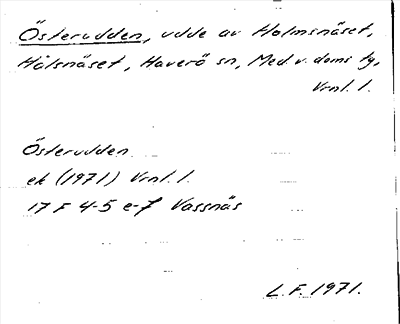 Österudden, udde av Holmsnäset,
Hålsnäset, Haverö sn, Med. v. doms lg,
Vrnl. l.
Österudden
ek (1971) Vrnl. l.
17 F 4-5 e-f Vassnäs
L.F. 1971.